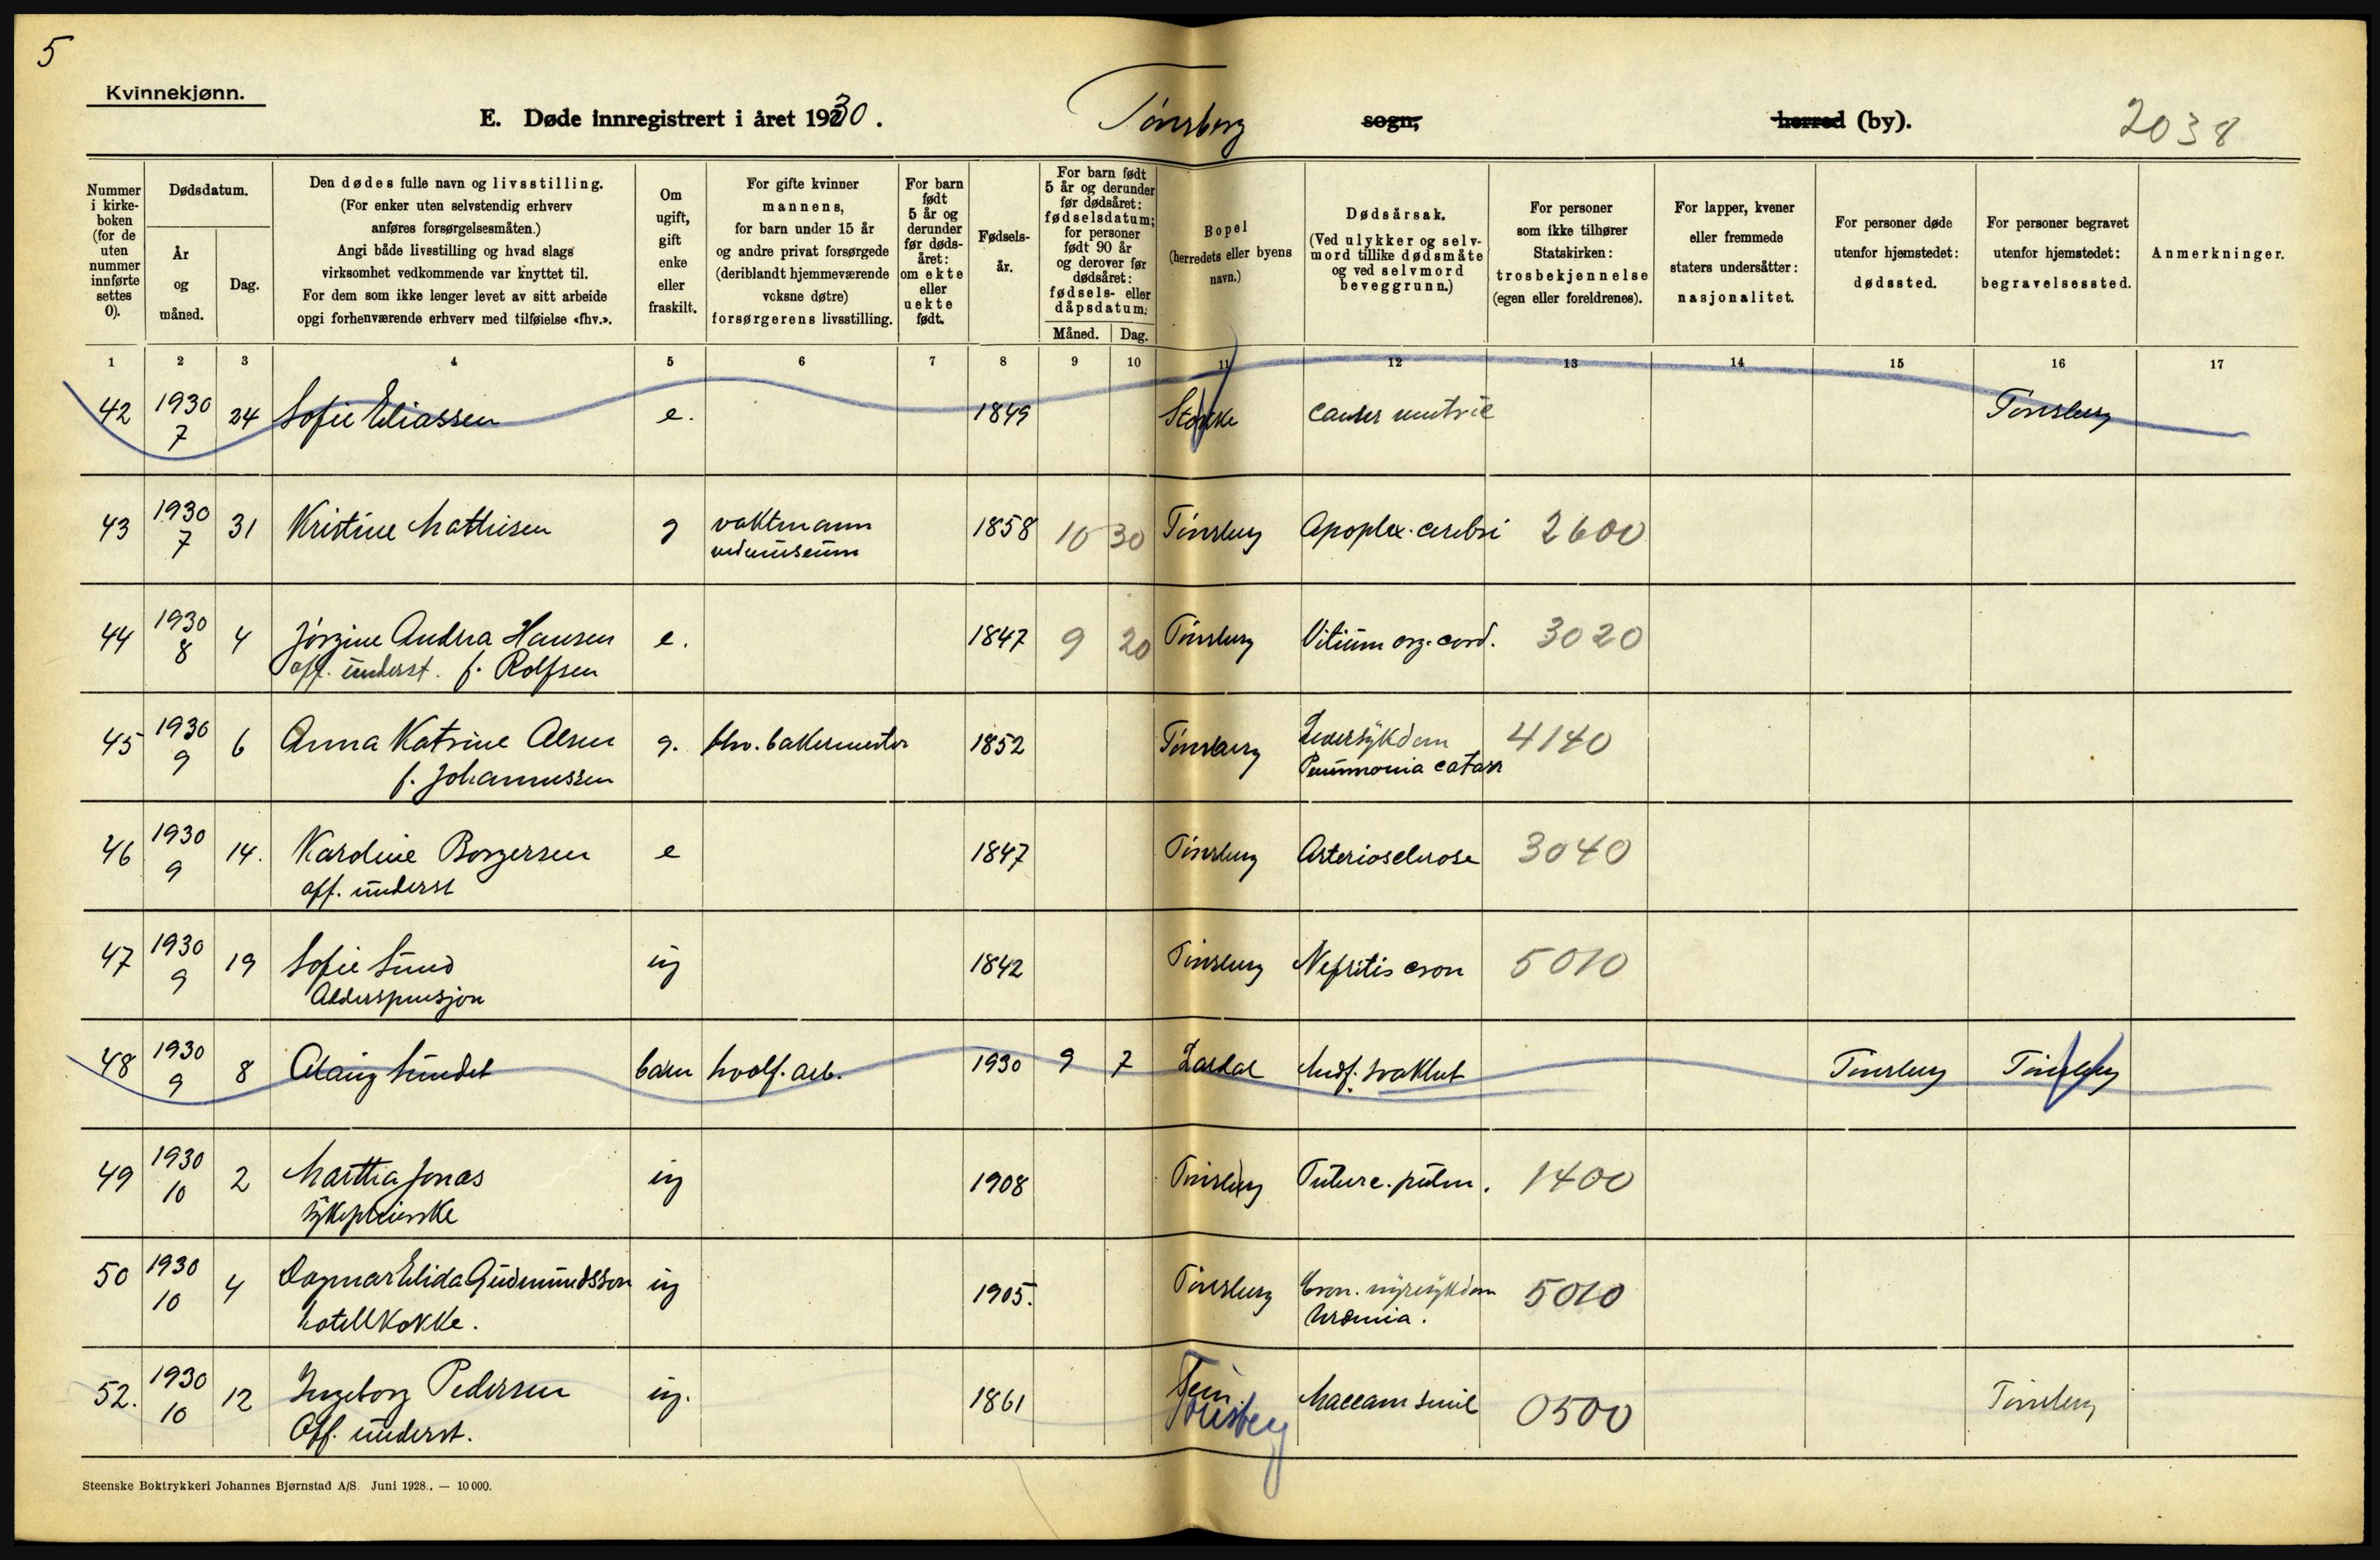 5
Kvinnekjønn.
E. Døde innregistrert i året 1930.
Tønsberg
sogn,
herred (by).
2038
Nummer i kirkeboken (for de uten nummer innførte settes 0).
Dødsdatum.
År og måned.
Dag.
Den dødes fulle navn og livsstilling.
(For enker uten selvstendig erhverv
anføres forsørgelsesmåten.)
Angi både livsstilling og hvad slags
virksomhet vedkommende var knyttet til.
For dem som ikke lenger levet av sitt arbeide
opgi forhenværende erhverv med tilføielse «fhv.».
Om ugift, gift enke eller fraskilt.
For gifte kvinner
mannens,
for barn under 15 år
og andre privat forsørgede
(deriblandt hjemmeværende
voksne døtre)
forsørgerens livsstilling.
For barn født 5 år og derunder før dødsåret: om ekte eller uekte født.
Fødselsår.
For barn født
5 år og derunder
før dødsåret:
fødselsdatum;
for personer
født 90 år
og derover før
dødsåret:
fødsels- eller
dåpsdatum.
Måned.
Dag.
Bopel
(herredets eller byens
navn.)
Dødsårsak.
(Ved ulykker og selvmord tillike dødsmåte
og ved selvmord
beveggrunn.)
For personer
som ikke tilhører
Statskirken:
trosbekjennelse
(egen eller foreldrenes).
For lapper, kvener
eller fremmede
staters undersåtter:
nasjonalitet.
For personer døde
utenfor hjemstedet:
dødssted.
For personer begravet
utenfor hjemstedet:
begravelsessted.
Anmerkninger.
1 2 3 4 5 6 7 8 9 10 11 12 13 14 15 16 17
42 1930 7 24 Sofie Eliassen e. 1849 Stokke Tønsberg
43 1930 7 31 Kristine Mathisen g vaktmann 1858 10 30 Tønsberg Apoplex. cerebri 2600
ved museum
44 1930 8 4 Jørgine Andrea Hansen e. 1847 9 20 Tønsberg Vitium org. cord. 3020
off. underst. f. Rolfsen
45 1930 9 6 Anna Katrine Olsen g. fhv. bakermester 1852 Tønsberg Leversykdom 4140
f. Johannessen Pneumonia catarr
46 1930 9 14. Karoline Borgersen e 1847 Tønsberg Arteriosclerose 3040
off. underst
47 1930 9 19 Sofie Sund ug 1842 Tønsberg Nefritis cron 5010
Alderspensjon
48 1930 9 8 Sundet barn hvalf. arb. 1930 9 7 Lardal Medf. svakhet Tønsberg Tønsberg
49 1930 10 2 Martha Jonas ug 1908 Tønsberg Tuberc. pulm. 1400
sykepleierske
50 1930 10 4 Dagmar Elida Gudmundsson ug 1905. Tønsberg Cron. nyresykdom 5010
hotellkokke. Uremia.
52. 1930 10 12 Ingeborg Pedersen ug. 1861 Sem. 0500 Tønsberg
Off. underst. Tønsberg
Steenske Boktrykkeri Johannes Bjørnstad A/S. Juni 1928. — 10 000.